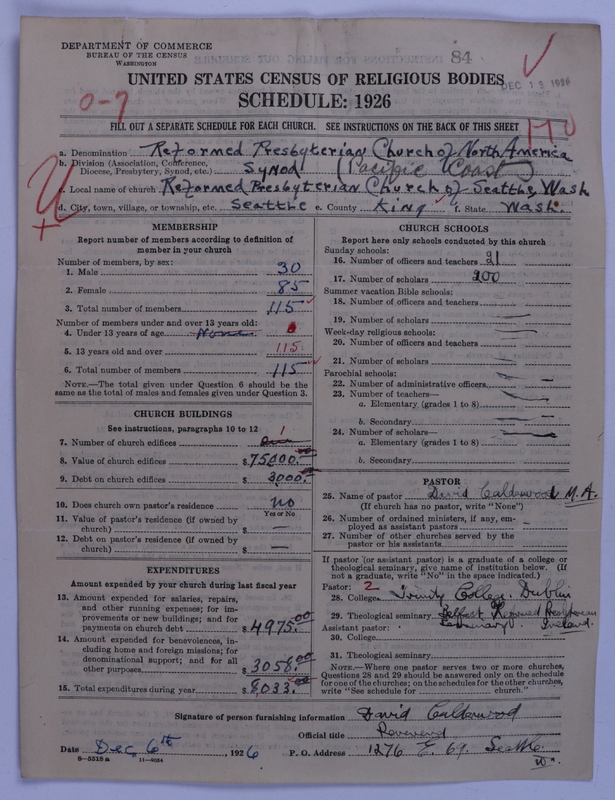 DEPARTMENT OF COMMERCE
BUREAU OF THE CENSUS
WASHINGTON
84
DEC 13 1926
UNITED STATES CENSUS OF RELIGIOUS BODIES
SCHEDULE: 1926
0-7
FILL OUT A SEPARATE SCHEDULE FOR EACH CHURCH. SEE INSTRUCTIONS ON THE BACK OF THIS SHEET
a. Denomination Reformed Presbyterian Church of North America
b. Division (Association, Conference, Diocese, Presbytery, Synod, etc.) Synod (Pacific Coast)
c. Local name of church Reformed Presbyterian Church of Seattle, Wash
d. City, town, village, or township, etc. Seattle e. County King f. State Wash.
MEMBERSHIP
Report number of members according to definition of member in your church
Number of members, by sex:
1. Male 30
2. Female 85
3. Total number of members 115
Number of members under and over 13 years old:
4. Under 13 years of age None
5. 13 years old and over 115
6. Total number of members 115
NOTE.—The total given under Question 6 should be the same as the total of males and females given under Question 3.
CHURCH BUILDINGS
See instructions, paragraphs 10 to 12
7. Number of church edifices One 1
8. Value of church edifices $ 75000.00
9. Debt on church edifices $ 3000.00
10. Does church own pastor's residence? No
Yes or No
11. Value of pastor's residence (if owned by church) $ —
12. Debt on pastor's residence (if owned by church) $ —
EXPENDITURES
Amount expended by your church during last fiscal year
13. Amount expended for salaries, repairs, and other running expenses; for improvements or new buildings; and for payments on church debt $ 4975.00
14. Amount expended for benevolences, including home and foreign missions; for denominational support; and for all other purposes $ 3058.00
15. Total expenditures during year $ 8033.00
CHURCH SCHOOLS
Report here only schools conducted by this church
Sunday schools:
16. Number of officers and teachers 21
17. Number of scholars 200
Summer vacation Bible schools:
18. Number of officers and teachers
19. Number of scholars
Week-day religious schools:
20. Number of officers and teachers
21. Number of scholars
Parochial schools:
22. Number of administrative officers
23. Number of teachers—
a. Elementary (grades 1 to 8)
b. Secondary
24. Number of scholars—
a. Elementary (grades 1 to 8)
b. Secondary
PASTOR
25. Name of pastor David Calderwood M.A.
(If church has no pastor, write "None")
26. Number of ordained ministers, if any, employed as assistant pastors
27. Number of other churches served by the pastor or his assistants
If pastor (or assistant pastor) is a graduate of a college or theological seminary, give name of institution below. (If not a graduate, write "No" in the space indicated.)
Pastor: 2
28. College Trinity College, Dublin
29. Theological seminary Belfast Reformed Presbyterian Seminary Ireland.
Assistant pastor:
30. College
31. Theological seminary
NOTE.—Where one pastor serves two or more churches, Questions 28 and 29 should be answered only on the schedule for one of the churches; on the schedules for the other churches, write "See schedule for church."
Signature of person furnishing information David Calderwood
Official title Reverend
Date Dec 6th, 1926 P. O. Address 1276 E. 69. Seattle
Wn.
8—5518a 11—9054